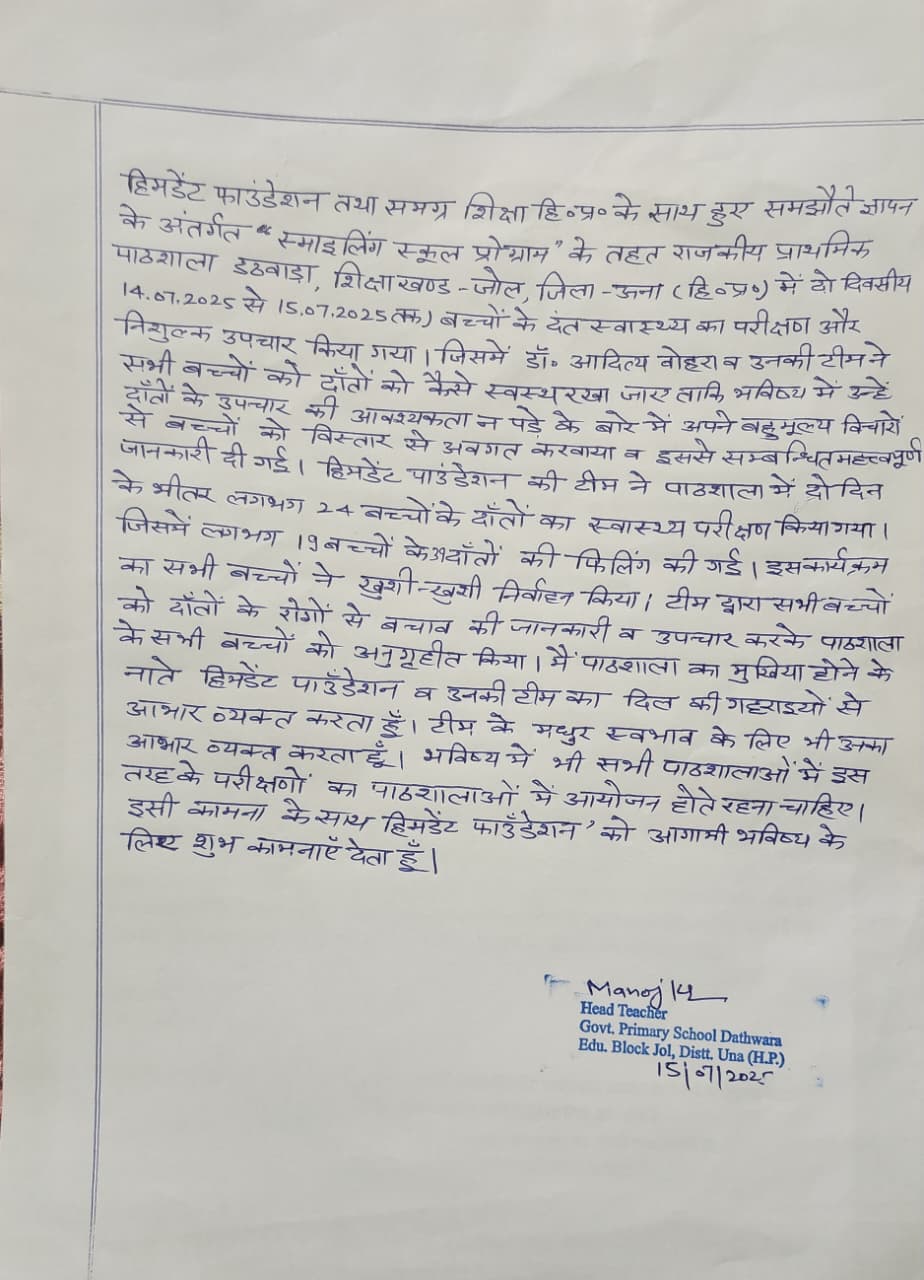 हिमडेंट फाउंडेशन तथा समग्र शिक्षा हि॰प्र॰ के साथ हुए समझौते ज्ञापन
के अंतर्गत “स्माइलिंग स्कूल प्रोग्राम” के तहत राजकीय प्राथमिक
पाठशाला डठवाड़ा, शिक्षा खण्ड - जोल, जिला - ऊना (हि॰प्र॰) में दो दिवसीय
14.07.2025 से 15.07.2025 तक) बच्चों के दंत स्वास्थ्य का परीक्षण और
निशुल्क उपचार किया गया। जिसमें डॉ॰ आदित्य वोहरा व उनकी टीम ने
सभी बच्चों को दाँतों को कैसे स्वस्थ रखा जाए ताकि भविष्य में उन्हें
दाँतों के उपचार की आवश्यकता न पड़े के बारे में अपने बहुमूल्य विचारों
से बच्चों को विस्तार से अवगत करवाया व इससे सम्बन्धित महत्त्वपूर्ण
जानकारी दी गई। हिमडेंट पाउंडेशन की टीम ने पाठशाला में दो दिन
के भीतर लगभग 24 बच्चों के दाँतों का स्वास्थ्य परीक्षण किया गया।
जिसमें लगभग 19 बच्चों के दाँतों की फिलिंग की गई। इस कार्यक्रम
का सभी बच्चों ने खुशी-खुशी निर्वाहन किया। टीम द्वारा सभी बच्चों
को दाँतों के रोगों से बचाव की जानकारी व उपचार करके पाठशाला
के सभी बच्चों को अनुगृहीत किया। मैं पाठशाला का मुखिया होने के
नाते हिमडेंट पाउँडेशन व उनकी टीम का दिल की गहराइयों से
आभार व्यक्त करता हूँ। टीम के मधुर स्वभाव के लिए भी उनका
आभार व्यक्त करता हूँ। भविष्य में भी सभी पाठशालाओं में इस
तरह के परीक्षणों का पाठशालाओं में आयोजन होते रहना चाहिए।
इसी कामना के साथ हिमडेंट फाउँडेशन’ को आगामी भविष्य के
लिए शुभ कामनाएँ देता हूँ।
Manoj
Head Teacher
Govt. Primary School Dathwara
Edu. Block Jol, Distt. Una (H.P.)
15/07/2025